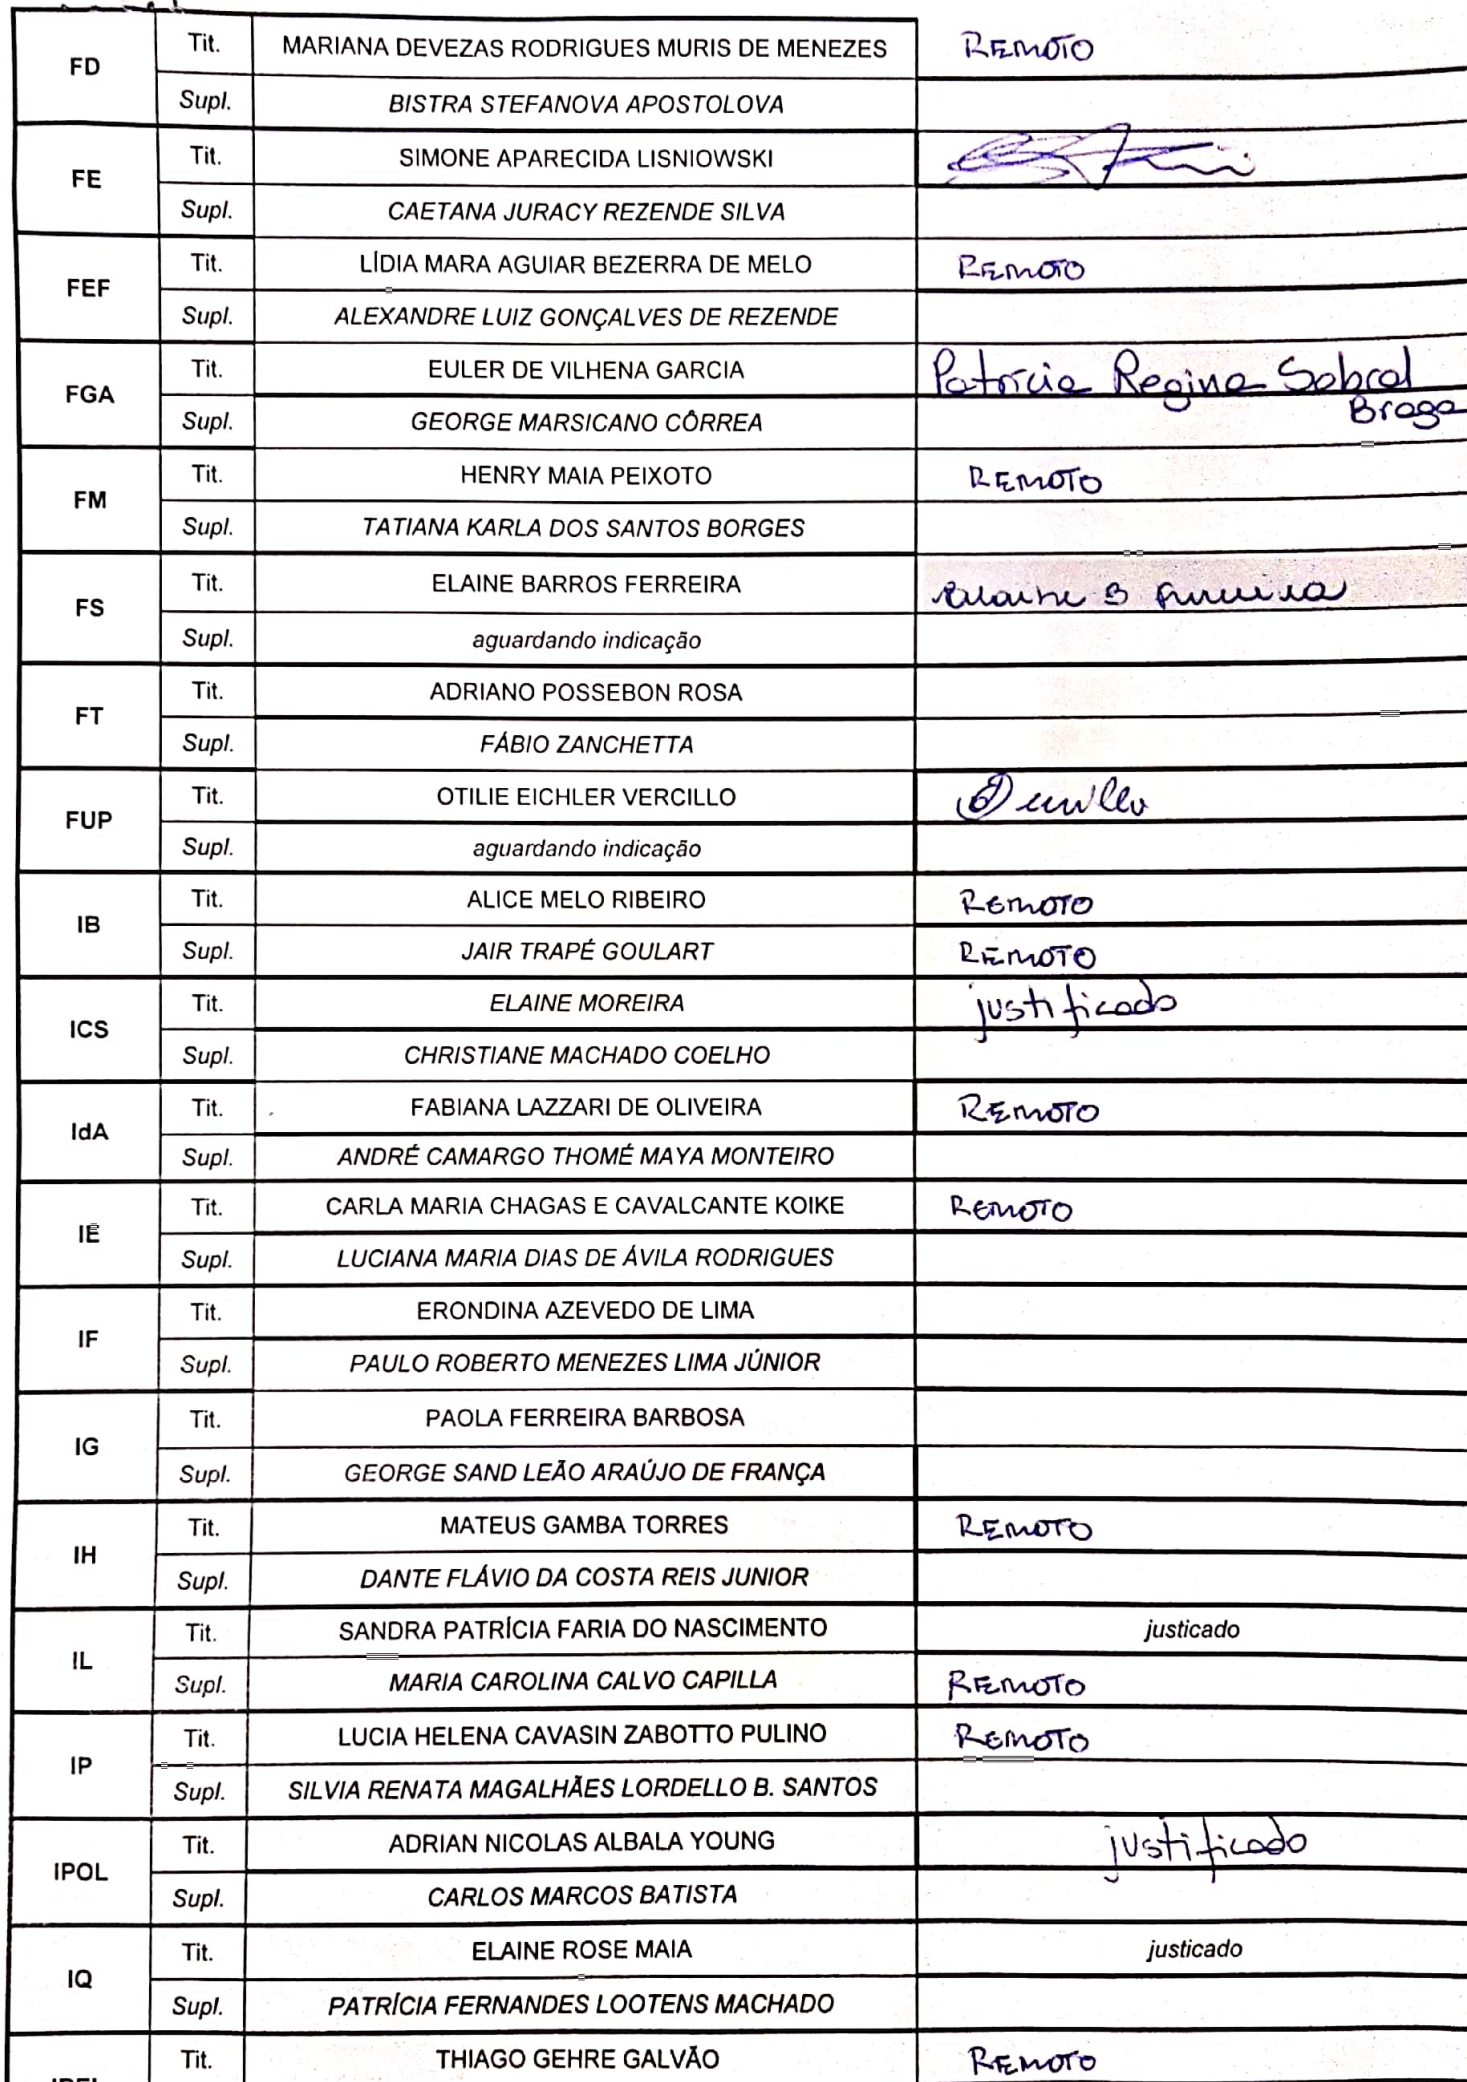 FD
Tit. MARIANA DEVEZAS RODRIGUES MURIS DE MENEZES REMOTO
Supl. BISTRA STEFANOVA APOSTOLOVA
FE
Tit. SIMONE APARECIDA LISNIOWSKI
Supl. CAETANA JURACY REZENDE SILVA
FEF
Tit. LÍDIA MARA AGUIAR BEZERRA DE MELO REMOTO
Supl. ALEXANDRE LUIZ GONÇALVES DE REZENDE
FGA
Tit. EULER DE VILHENA GARCIA Patrícia Regina Sobral
Braga
Supl. GEORGE MARSICANO CÔRREA
FM
Tit. HENRY MAIA PEIXOTO REMOTO
Supl. TATIANA KARLA DOS SANTOS BORGES
FS
Tit. ELAINE BARROS FERREIRA Elaine B Ferreira
Supl. aguardando indicação
FT
Tit. ADRIANO POSSEBON ROSA
Supl. FÁBIO ZANCHETTA
FUP
Tit. OTILIE EICHLER VERCILLO
Supl. aguardando indicação
IB
Tit. ALICE MELO RIBEIRO REMOTO
Supl. JAIR TRAPÉ GOULART REMOTO
ICS
Tit. ELAINE MOREIRA justificado
Supl. CHRISTIANE MACHADO COELHO
IdA
Tit. FABIANA LAZZARI DE OLIVEIRA REMOTO
Supl. ANDRÉ CAMARGO THOMÉ MAYA MONTEIRO
IE
Tit. CARLA MARIA CHAGAS E CAVALCANTE KOIKE REMOTO
Supl. LUCIANA MARIA DIAS DE ÁVILA RODRIGUES
IF
Tit. ERONDINA AZEVEDO DE LIMA
Supl. PAULO ROBERTO MENEZES LIMA JÚNIOR
IG
Tit. PAOLA FERREIRA BARBOSA
Supl. GEORGE SAND LEÃO ARAÚJO DE FRANÇA
IH
Tit. MATEUS GAMBA TORRES REMOTO
Supl. DANTE FLÁVIO DA COSTA REIS JUNIOR
IL
Tit. SANDRA PATRÍCIA FARIA DO NASCIMENTO justicado
Supl. MARIA CAROLINA CALVO CAPILLA REMOTO
IP
Tit. LUCIA HELENA CAVASIN ZABOTTO PULINO REMOTO
Supl. SILVIA RENATA MAGALHÃES LORDELLO B. SANTOS
IPOL
Tit. ADRIAN NICOLAS ALBALA YOUNG justificado
Supl. CARLOS MARCOS BATISTA
IQ
Tit. ELAINE ROSE MAIA justicado
Supl. PATRÍCIA FERNANDES LOOTENS MACHADO
Tit. THIAGO GEHRE GALVÃO REMOTO